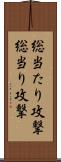 総当たり攻撃
総当り攻撃